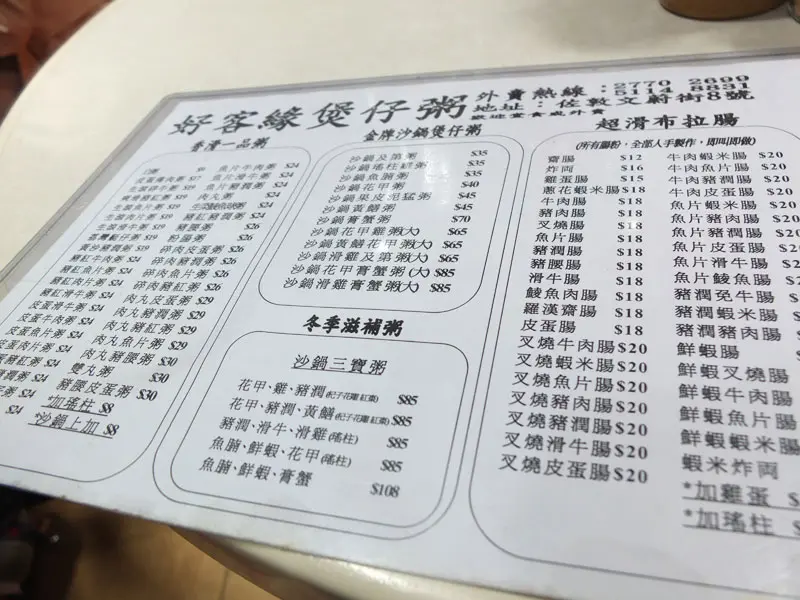 好客緣煲仔粥
外賣熱線：2770 2699
5114 8831
地址：佐敦文蔚街8號
歡迎堂食或外賣
香滑一品粥
魚片牛肉粥 $24
魚片滑牛粥 $24
魚片豬潤粥 $24
肉丸粥 $24
豬紅豬潤粥 $24
粉腸粥 $26
碎肉皮蛋粥 $26
碎肉豬潤粥 $26
碎肉豬紅粥 $26
肉丸皮蛋粥 $29
肉丸豬潤粥 $29
肉丸豬紅粥 $29
肉丸魚片粥 $29
肉丸豬腰粥 $30
雙丸粥 $30
豬腰皮蛋粥 $30
豬紅牛肉粥 $24
豬紅魚片粥 $24
豬紅滑牛粥 $24
皮蛋滑牛粥 $24
皮蛋牛肉粥 $24
皮蛋魚片粥 $24
*加瑤柱 $8
*沙鍋上加 $8
金牌沙鍋煲仔粥
沙鍋及第粥 $35
沙鍋瑤柱奶粥 $35
沙鍋魚腩粥 $35
沙鍋花甲粥 $40
沙鍋果皮泥猛粥 $45
沙鍋黃鱔粥 $45
沙鍋膏蟹粥 $70
沙鍋花甲雞粥(大) $65
沙鍋黃鱔花甲粥(大) $65
沙鍋滑雞及第粥(大) $65
沙鍋花甲膏蟹粥(大) $85
沙鍋滑雞膏蟹粥(大) $85
冬季滋補粥
沙鍋三寶粥
花甲、雞、豬潤(杞子花雕紅棗) $85
花甲、豬潤、黃鱔(杞子花雕紅棗) $85
豬潤、滑牛、滑雞(瑤柱) $85
魚腩、鮮蝦、花甲(瑤柱) $85
魚腩、鮮蝦、膏蟹 $108
超滑布拉腸
(所有腸粉，全部人手製作，即叫即做)
齋腸 $12
炸両 $16
雞蛋腸 $15
蔥花蝦米腸 $18
牛肉腸 $18
豬肉腸 $18
叉燒腸 $18
魚片腸 $18
豬潤腸 $18
豬腰腸 $18
滑牛腸 $18
鯪魚肉腸 $18
羅漢齋腸 $18
皮蛋腸 $18
叉燒牛肉腸 $20
叉燒蝦米腸 $20
叉燒魚片腸 $20
叉燒豬肉腸 $20
叉燒豬潤腸 $20
叉燒滑牛腸 $20
叉燒皮蛋腸 $20
牛肉蝦米腸 $20
牛肉魚片腸 $20
牛肉豬潤腸 $20
牛肉皮蛋腸 $20
魚片蝦米腸 $20
魚片豬肉腸 $20
魚片豬潤腸 $20
魚片皮蛋腸 $20
魚片滑牛腸
魚片鯪魚腸
豬潤免牛腸
豬潤蝦米腸
豬潤豬肉腸
鮮蝦腸
鮮蝦叉燒腸
鮮蝦牛肉腸
鮮蝦魚片腸
鮮蝦蝦米腸
蝦米炸両
*加雞蛋
*加瑤柱